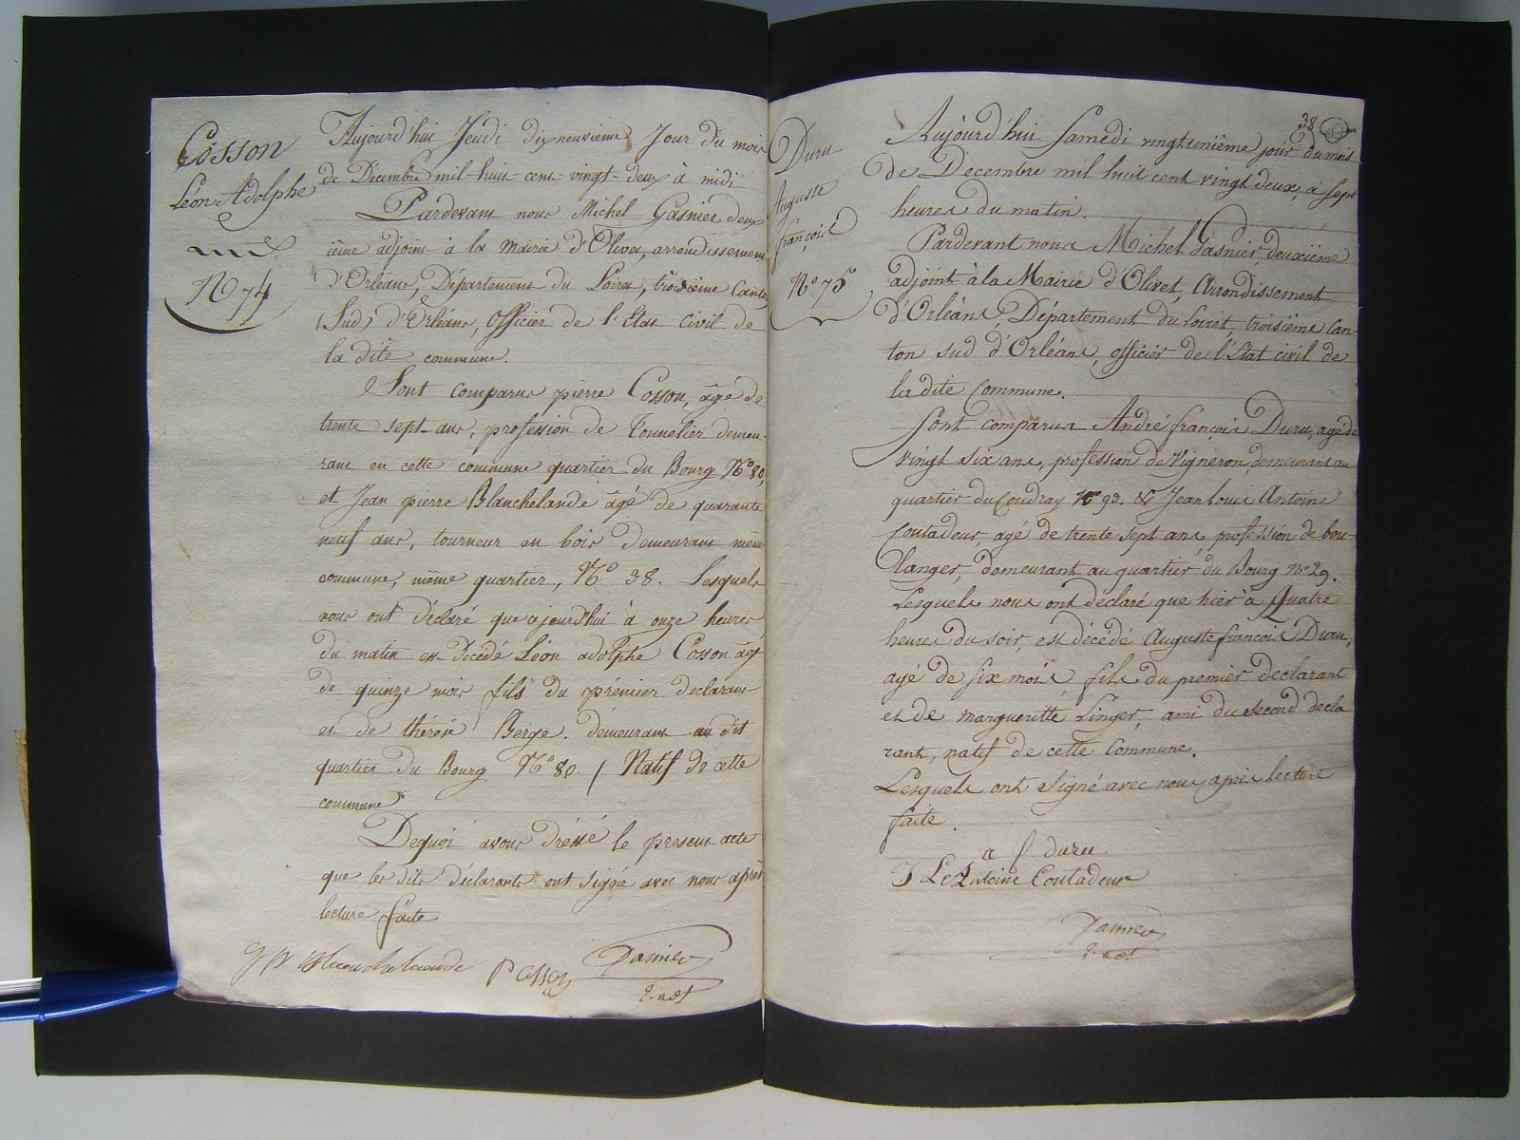 Cosson
Léon Adolphe
N.o 74
Aujourd'hui Jeudi dix neuvième Jour du mois
de Décembre mil-huit-cent-vingt-deux à midi
Pardevant nous Michel Gasnier deux
ième adjoint à la mairie d'Olivet, arrondissement
d'Orléans, Département du Loiret, troisième Canton
(Sud) d'Orléans, Officier de l'Etat Civil de
la dite commune.
Sont comparus pierre Cosson, âgé de
trente sept ans, profession de Tonnelier demeu-
rant en cette commune quartier du Bourg N.o 80,
et Jean pierre Blanchelande âgé de quarante
neuf ans, tourneur en bois demeurant même
commune, même quartier, N.o 38. Lesquels
nous ont déclaré que ajourd'hui à onze heures
du matin est décédé Léon adolphe Cosson âgé
de quinze mois fils du prémier declarant
et de thérèse Berge. demeurant au dit
quartier du Bourg N.o 80. / Natif de cette
commune
Dequoi avons dréssé le present acte
que les dits déclarants ont signé avec nous après
lecture faite
J P Blanchelande P Cosson Gasnier
38
Duru
Auguste
françois
N.o 75
Aujourd'hui Samedi vingt unième jour du mois
de Decembre mil huit cent vingt deux, a sept
heures du matin.
Pardevant nous Michel Gasnier, deuxième
adjoint à la Mairie d'Olivet, Arrondissement
d'Orléans Département du Loiret, troisième Can-
ton sud d'Orléans, officier de l'Etat civil de
la dite Commune.
Sont comparus André françois Duru, agé de
vingt six ans, profession de Vigneron demeurant au
quartier du Coudray N.o 93. & Jean Louis Antoine
Coutadeur, agé de trente sept ans profession de bou-
langer, demeurant au quartier du Bourg N.o 29.
Lesquels nous ont déclaré que hier à Quatre
heures du soir, est décédé Auguste françois Duru,
agé de six mois fils du premier declarant
et de margueritte Linger, ami du second decla
rant, natif de cette Commune.
Lesquels ont signé avec nous après lecture
faite.
a f duru
J Ls Antoine Coutadeur
Gasnier